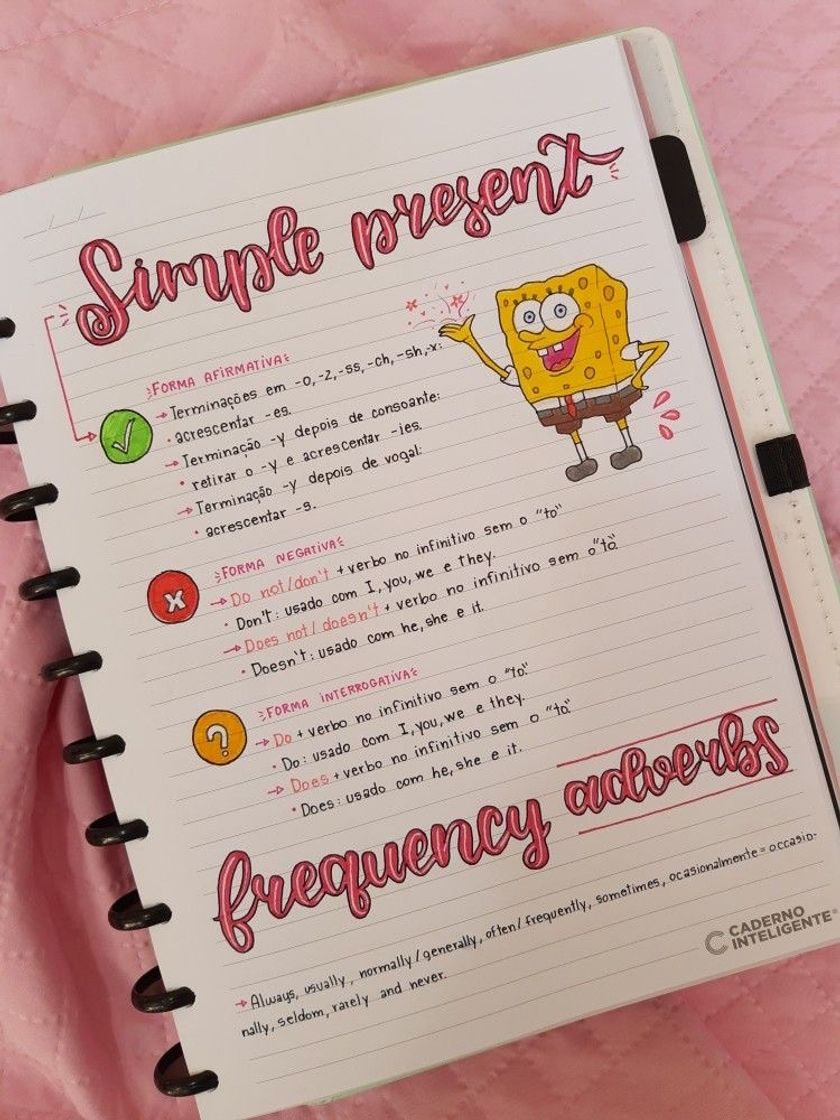 Simple present
FORMA AFIRMATIVA
→ Terminações em -o, -z, -ss, -ch, -sh, -x:
• acrescentar -es.
→ Terminação -y depois de consoante:
• retirar o -y e acrescentar -ies.
→ Terminação -y depois de vogal:
• acrescentar -s.
FORMA NEGATIVA
→ Do not/don't + verbo no infinitivo sem o "to"
• Don't: usado com I, you, we e they.
→ Does not/doesn't + verbo no infinitivo sem o "to".
• Doesn't: usado com he, she e it.
?
FORMA INTERROGATIVA
→ Do + verbo no infinitivo sem o "to".
• Do: usado com I, you, we e they.
→ Does + verbo no infinitivo sem o "to".
• Does: usado com he, she e it.
frequency adverbs
→ Always, usually, normally/generally, often/frequently, sometimes, ocasionalmente = occasio-
nally, seldom, rarely and never.
CADERNO
INTELIGENTE®